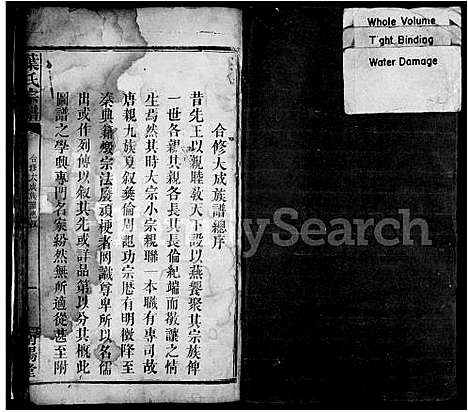 合修大成族譜總序
昔先王以親睦敎天下設以燕饗聚其宗族俾
一世各親其親各長其長倫紀端而敬讓之情
生焉然其時大宗小宗親聯一本職有專司故
唐親九族夏叙彜倫周起功宗厯有明徵降至
秦典籍燬宗法廢頑梗者罔識尊卑所以名儒
出或作列傳以叙其先或詳品第以分其槪此
圖譜之學興專門名家紛然無所適從甚至附
葉氏宗譜
合修大成
一
堂
Whole Volume
Tight Binding
Water Damage
Search